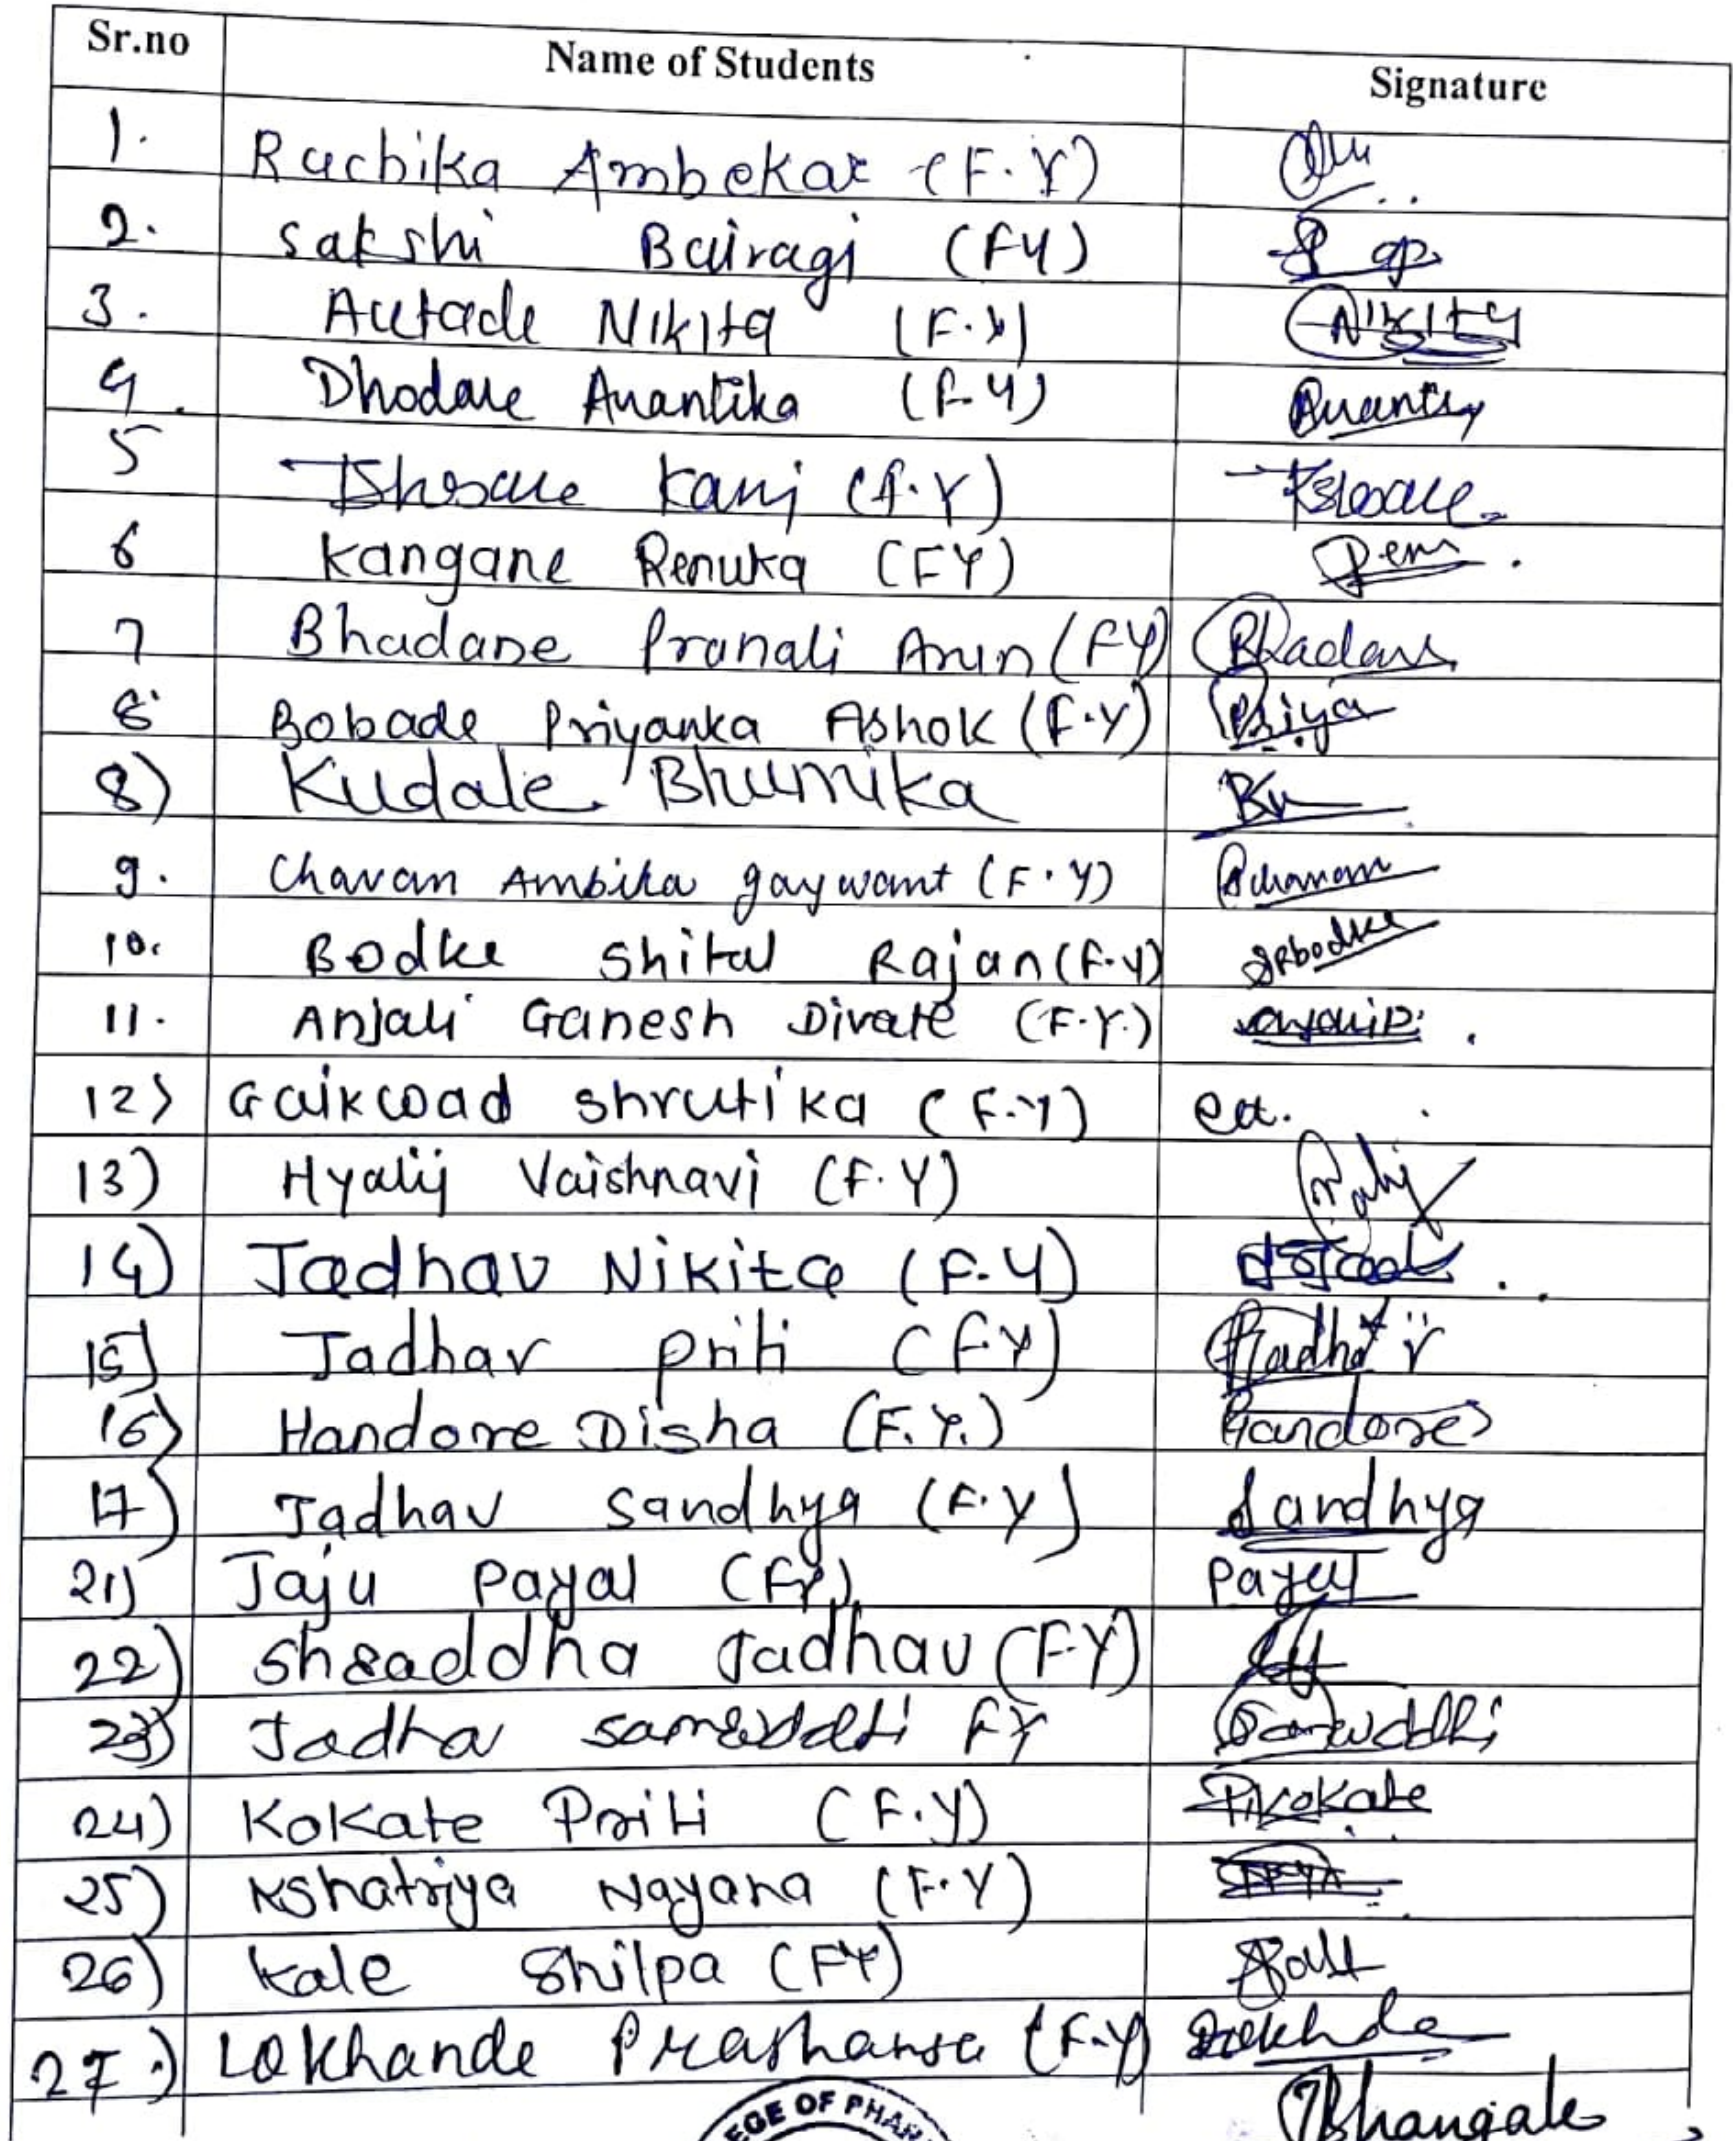 Sr.no Name of Students Signature
1. Ruchika Ambekar (F.Y)
2. Sakshi Bairagi (FY)
3. Autade Nikita (F.Y) Nikita
4. Dhodare Avantika (F.Y)
5 Kani (F.Y)
6 Kangane Renuka (FY) Renu
7 Bhadane Pranali Arun (FY) Bhadane
8 Bobade Priyanka Ashok (F.Y) Priya
8) Kudale Bhumika
9. Chavan Ambika gaywant (F.Y)
10. Bodke Shital Rajan (F.Y) SRbodke
11. Anjali Ganesh Divate (F.Y.)
12) Gaikwad Shrutika (F.Y)
13) Hyalij Vaishnavi (F.Y)
14) Jadhav Nikita (F.Y)
15) Jadhav Priti (FY)
16) Handore Disha (F.Y.) Handore
17) Jadhav Sandhya (F.Y) Sandhya
21) Jaju Payal (FY) Payal
22) Shraddha Jadhav (F.Y)
23) Jadha Samruddhi FY Samruddhi
24) Kokate Priti (F.Y) P.Kokate
25) Kshatriya Nayana (F.Y)
26) Kale Shilpa (FY)
27.) Lokhande Prashansa (F.Y)
EGE OF PHAR Bhangale